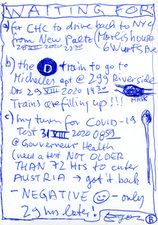 WAITING FOR
a) for CHC to drive back to NYC
from New Paltz (Marli's house
28 XII 2020
b) the D train to go to
Michelles apt @ 299 Riverside
Dr 29 XII 2020 1930
MASK
Trains are filling up!!!
c) my turn for COVID-19
Test 31 XII 2020 0859
@ Gouverneur Health
(need a test NOT OLDER
THAN 72 HRS to enter
AUSTRIA → got it back
- NEGATIVE - only
29 hrs later!